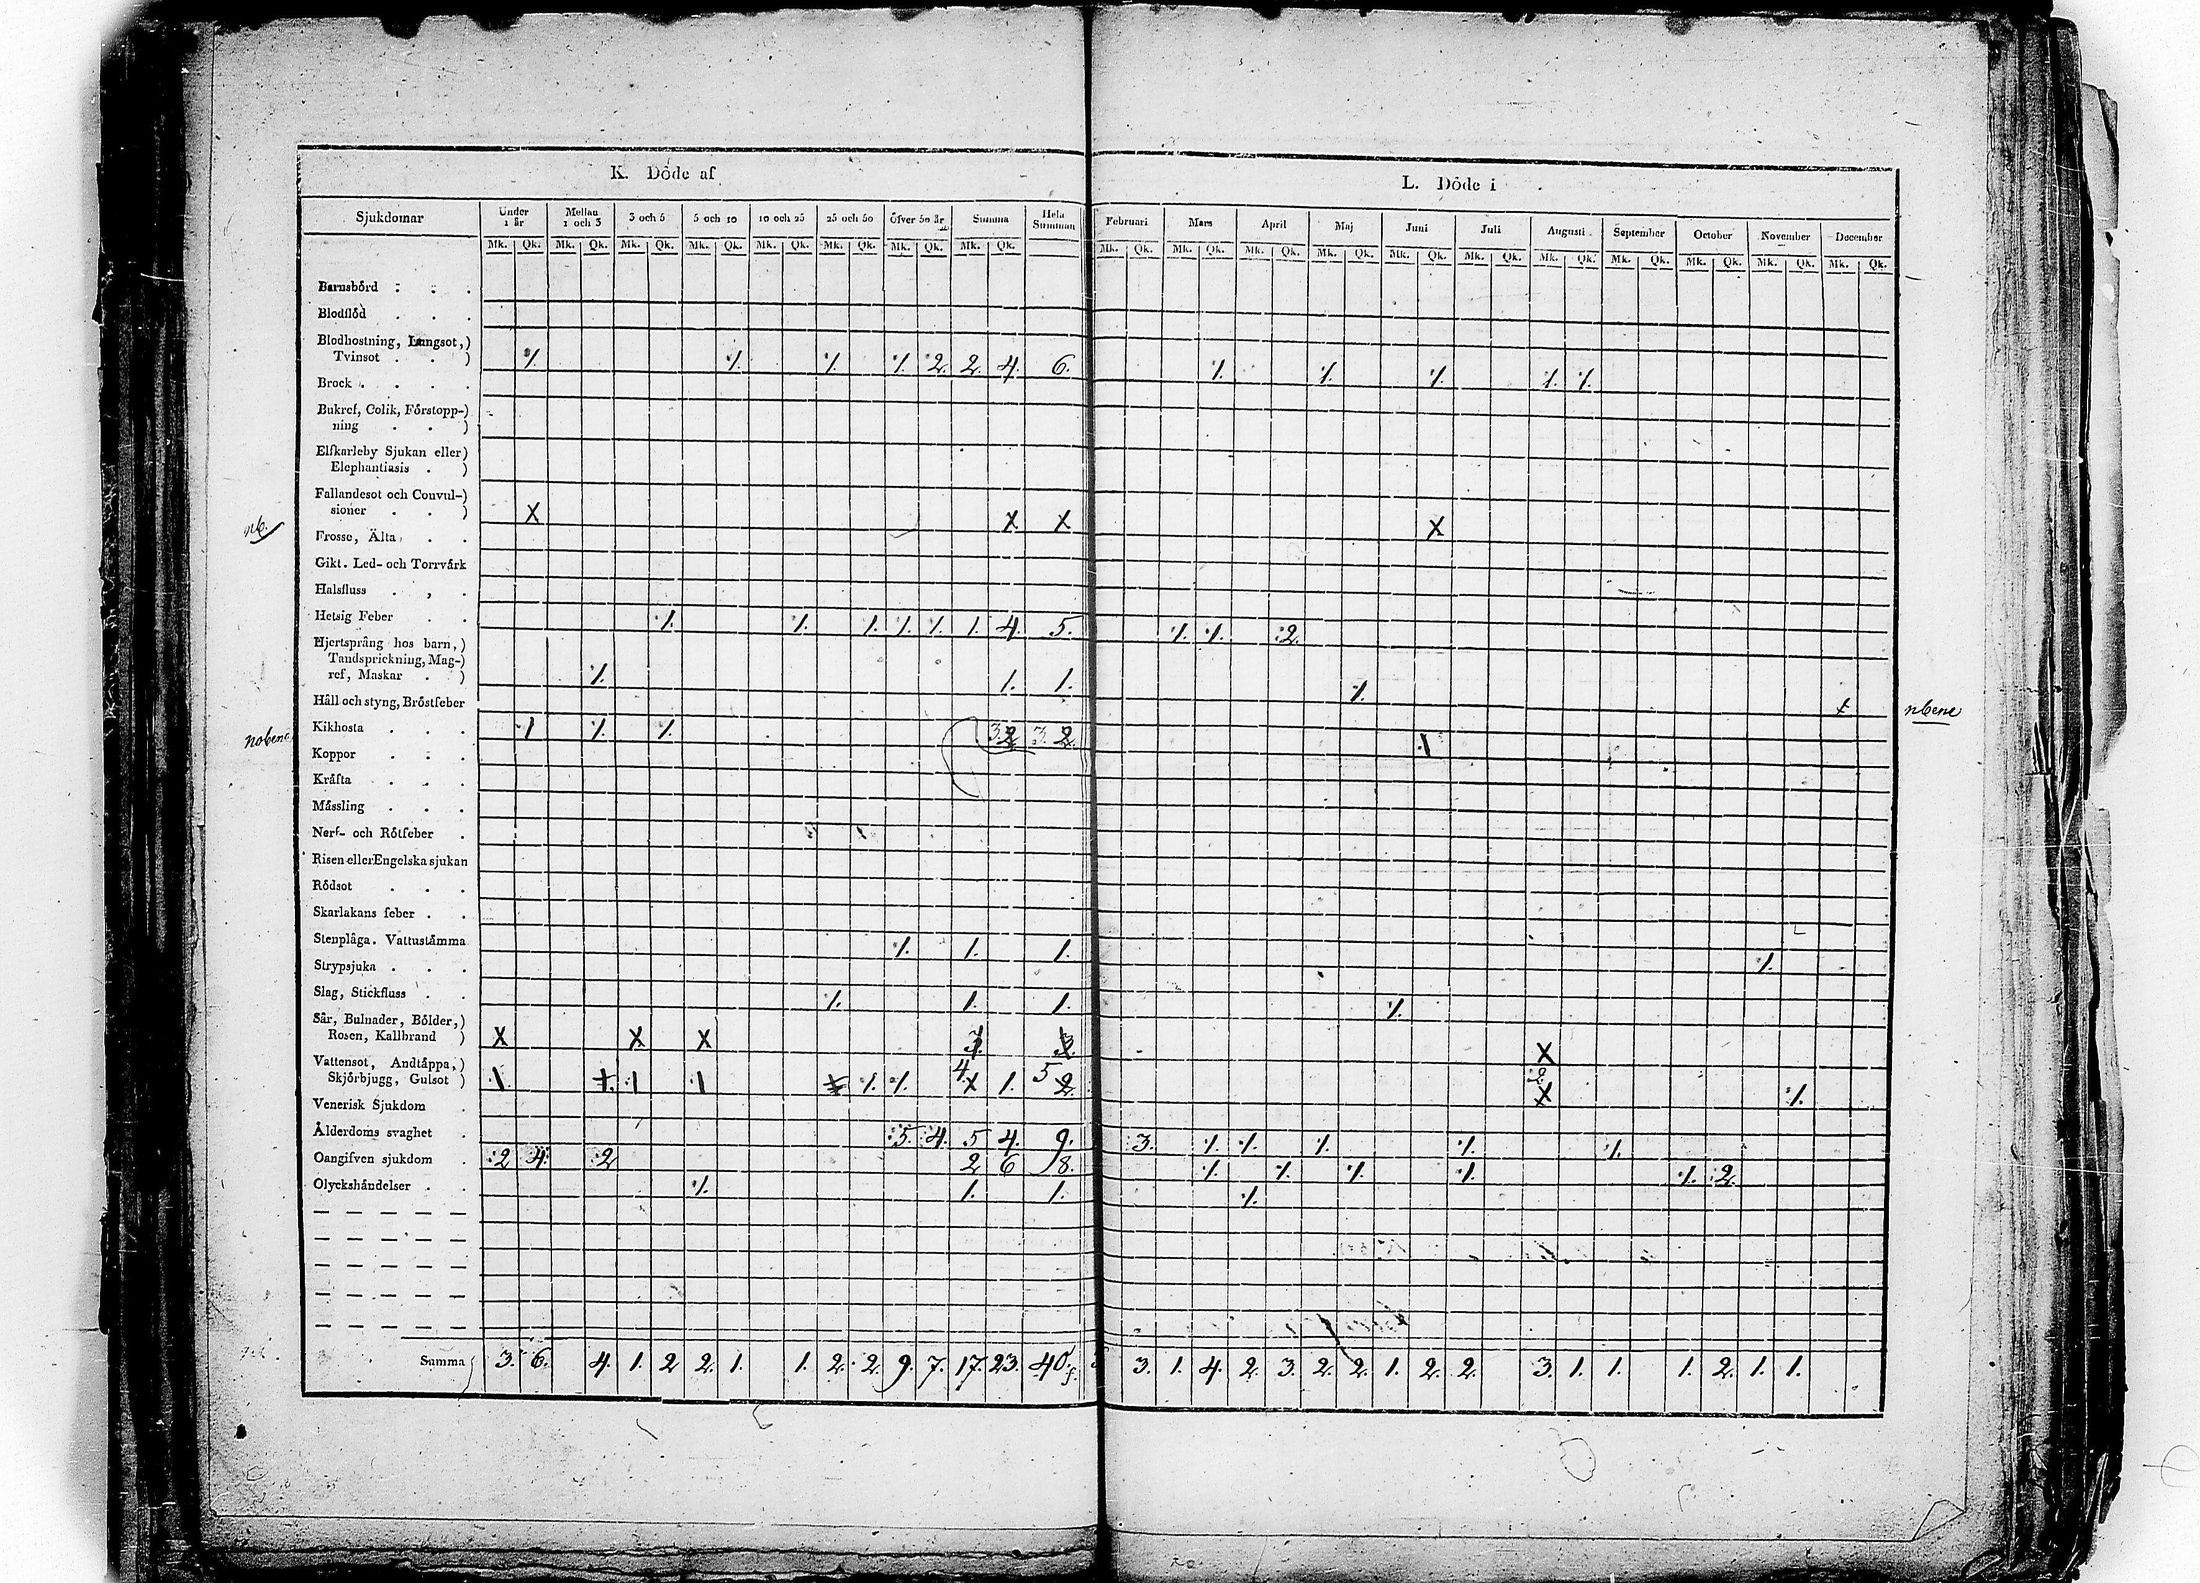 K. Döde af
Sjukdomar Under 1 år Mellan 1 och 3 3 och 5 5 och 10 10 och 25 25 och 50 Öfver 50 år Summa Hela Summan
Mk. Qk. Mk. Qk. Mk. Qk. Mk. Qk. Mk. Qk. Mk. Qk. Mk. Qk. Mk. Qk.
Barnsbörd
Blodflöd
Blodhostning, Lungsot,)
Tvinsot . . ) 1. 1. 1. 1. 2. 2. 4. 6.
Brock
Bukref, Colik, Förstopp-)
ning . . )
Elfkarleby Sjukan eller)
Elephantiasis . )
Fallandesot och Convul-)
sioner . . ) X X X
nb.
Frosse, Älta
Gikt. Led- och Torrvärk
Halsfluss
Hetsig Feber 1. 1. 1. 1. 1. 1. 4. 5.
Hjertsprång hos barn,)
Tandsprickning, Mag-)
ref, Maskar . ) 1. 1. 1.
Håll och styng, Bröstfeber
Kikhosta 1 1. 1. 3. 2. 3. 2.
nobene
Koppor
Kräfta
Mässling
Nerf- och Rötfeber
Risen eller Engelska sjukan
Rödsot
Skarlakans feber
Stenplåga. Vattustämma 1. 1. 1.
Strypsjuka
Slag, Stickfluss 1. 1. 1.
Sår, Bulnader, Bölder,)
Rosen, Kallbrand ) X X X 3. 3.
Vattensot, Andtäppa,)
Skjörbjugg, Gulsot ) 1. 1. 1 1 1. 1. 4. 1. 5 2.
Venerisk Sjukdom
Ålderdoms svaghet 5. 4. 5 4. 9.
Oangifven sjukdom 2 4. 2 2 6 8.
Olyckshändelser 1. 1. 1.
Summa 3. 6. 4. 1. 2 2. 1. 1. 2. 2. 9. 7. 17. 23. 40.
L. Döde i
Februari Mars April Maj Juni Juli Augusti September October November December
Mk. Qk. Mk. Qk. Mk. Qk. Mk. Qk. Mk. Qk. Mk. Qk. Mk. Qk. Mk. Qk. Mk. Qk. Mk. Qk. Mk. Qk.
1. 1. 1. 1. 1.
X
1. 1. 2.
1.
nbene
1
1.
1.
X
X 1.
3. 1. 1. 1. 1. 1.
1. 1. 1. 1. 1. 2.
1.
3. 1. 4. 2. 3. 2. 2. 1. 2. 2. 3. 1. 1. 1. 2. 1. 1.